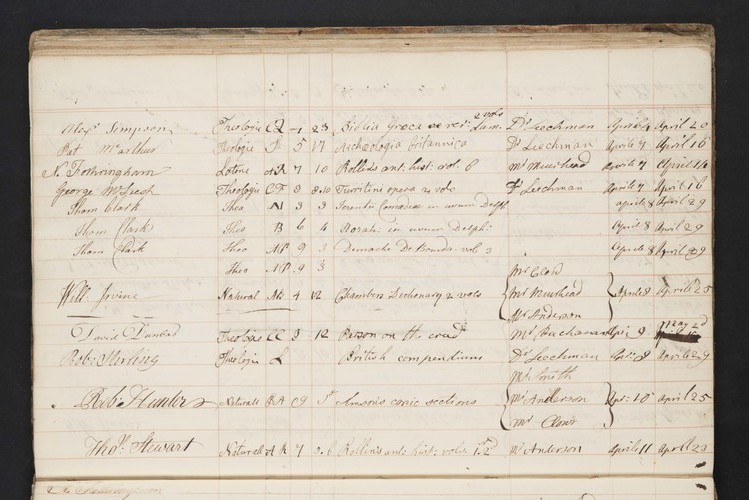 Alexr Simpson Theologie CQ 1 23 Biblia Graca 2 vols Dr Leechman Aprile 4 April 20
Pat McArthur Theologie F 5 17 Archæologia britannica Dr Leechman Aprile 7 April 16
N. Fothringham Latine AR 7 10 Rollin's ant: hist: vol. 6 Mr Muirhead Aprile 7 April
George McLeod Theologie CF 8 8.10 Turritini opera 2 vols Dr Leechman Aprile 7 April 16
Thom Clark Theo N 3 3 Terentii in usum Delph Aprile 8 April 29
Thom Clark Theo B 6 4 Horatii in usum Delphi April 8 April 29
Thom Clark Theo NP 9 3 vol 3 Aprile 8 April 29
Theo NP 9 3
Mr Clow
Will: Irvine Natural 4 12 Chambers Dictionary 2 vols Mr Muirhead Aprile 8 Aprile 25
Mr Anderson
David Dunbar Theologie CC 3 12 Pearson on the creed Mr Buchanan Apr: 9 May 2d
Rob: Sterling Theologie L British compendiums Dr Leechman Apr: 9 Aprile 29
Mr Smith
Rob: Hunter Naturall BA 9 Simson's conic sections Mr Anderson Apr: 10 April 25
Mr Clow
Thos Stewart Naturall AR 7 5.6 Rollin's ant: hist: vols 1.2d Mr Anderson Aprile 11 April 23